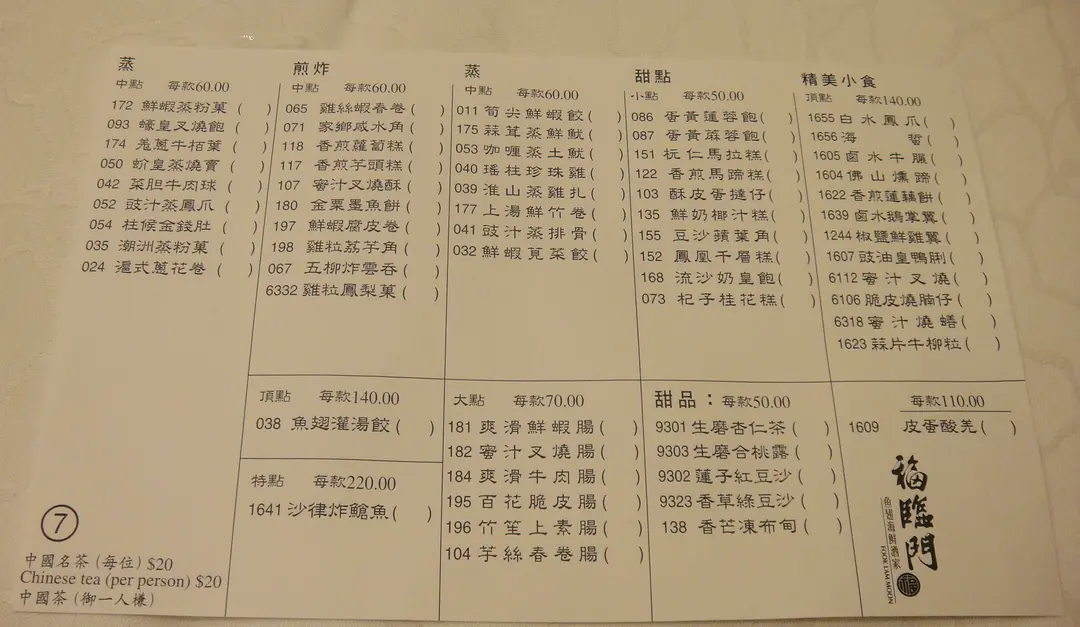 蒸
中點 每款60.00
172 鮮蝦蒸粉菓 ( )
093 蠔皇叉燒飽 ( )
174 羗蔥牛栢葉 ( )
050 蚧皇蒸燒賣 ( )
042 菜胆牛肉球 ( )
052 豉汁蒸鳳爪 ( )
054 柱候金錢肚 ( )
035 潮洲蒸粉菓 ( )
024 滬式蔥花卷 ( )
煎炸
中點 每款60.00
065 雞絲蝦春卷 ( )
071 家鄉咸水角 ( )
118 香煎蘿蔔糕 ( )
117 香煎芋頭糕 ( )
107 蜜汁叉燒酥 ( )
180 金粟墨魚餅 ( )
197 鮮蝦腐皮卷 ( )
198 雞粒荔芋角 ( )
067 五柳炸雲吞 ( )
6332 雞粒鳳梨菓 ( )
蒸
中點 每款60.00
011 筍尖鮮蝦餃 ( )
175 蒜茸蒸鮮魷 ( )
053 咖喱蒸土魷 ( )
040 瑤柱珍珠雞 ( )
039 淮山蒸雞扎 ( )
177 上湯鮮竹卷 ( )
041 豉汁蒸排骨 ( )
032 鮮蝦莧菜餃 ( )
甜點
小點 每款50.00
086 蛋黃蓮蓉飽( )
087 蛋黃蔴蓉飽( )
151 杬仁馬拉糕( )
122 香煎馬蹄糕( )
103 酥皮蛋撻仔( )
135 鮮奶椰汁糕( )
155 豆沙蘋葉角( )
152 鳳凰千層糕( )
168 流沙奶皇飽( )
073 杞子桂花糕( )
精美小食
頂點 每款140.00
1655 白水鳳爪( )
1656 海 蜇( )
1605 鹵水牛𦟌( )
1604 佛山燻蹄( )
1622 香煎蓮藕餅( )
1639 鹵水鵝掌翼( )
1244 椒鹽鮮雞翼( )
1607 豉油皇鴨脷( )
6112 蜜汁叉燒( )
6106 脆皮燒腩仔( )
6318 蜜汁燒鱔( )
1623 蒜片牛柳粒( )
頂點 每款140.00
038 魚翅灌湯餃( )
特點 每款220.00
1641 沙律炸鯧魚( )
大點 每款70.00
181 爽滑鮮蝦腸( )
182 蜜汁叉燒腸( )
184 爽滑牛肉腸( )
195 百花脆皮腸( )
196 竹笙上素腸( )
104 芋絲春卷腸( )
甜品：每款50.00
9301 生磨杏仁茶( )
9303 生磨合桃露( )
9302 蓮子紅豆沙( )
9323 香草綠豆沙( )
138 香芒凍布甸( )
每款110.00
1609 皮蛋酸羌( )
福臨門
魚翅海鮮酒家
FOOK LAM MOON
7
中國名茶 (每位) $20
Chinese tea (per person) $20
中國茶 (御一人様)